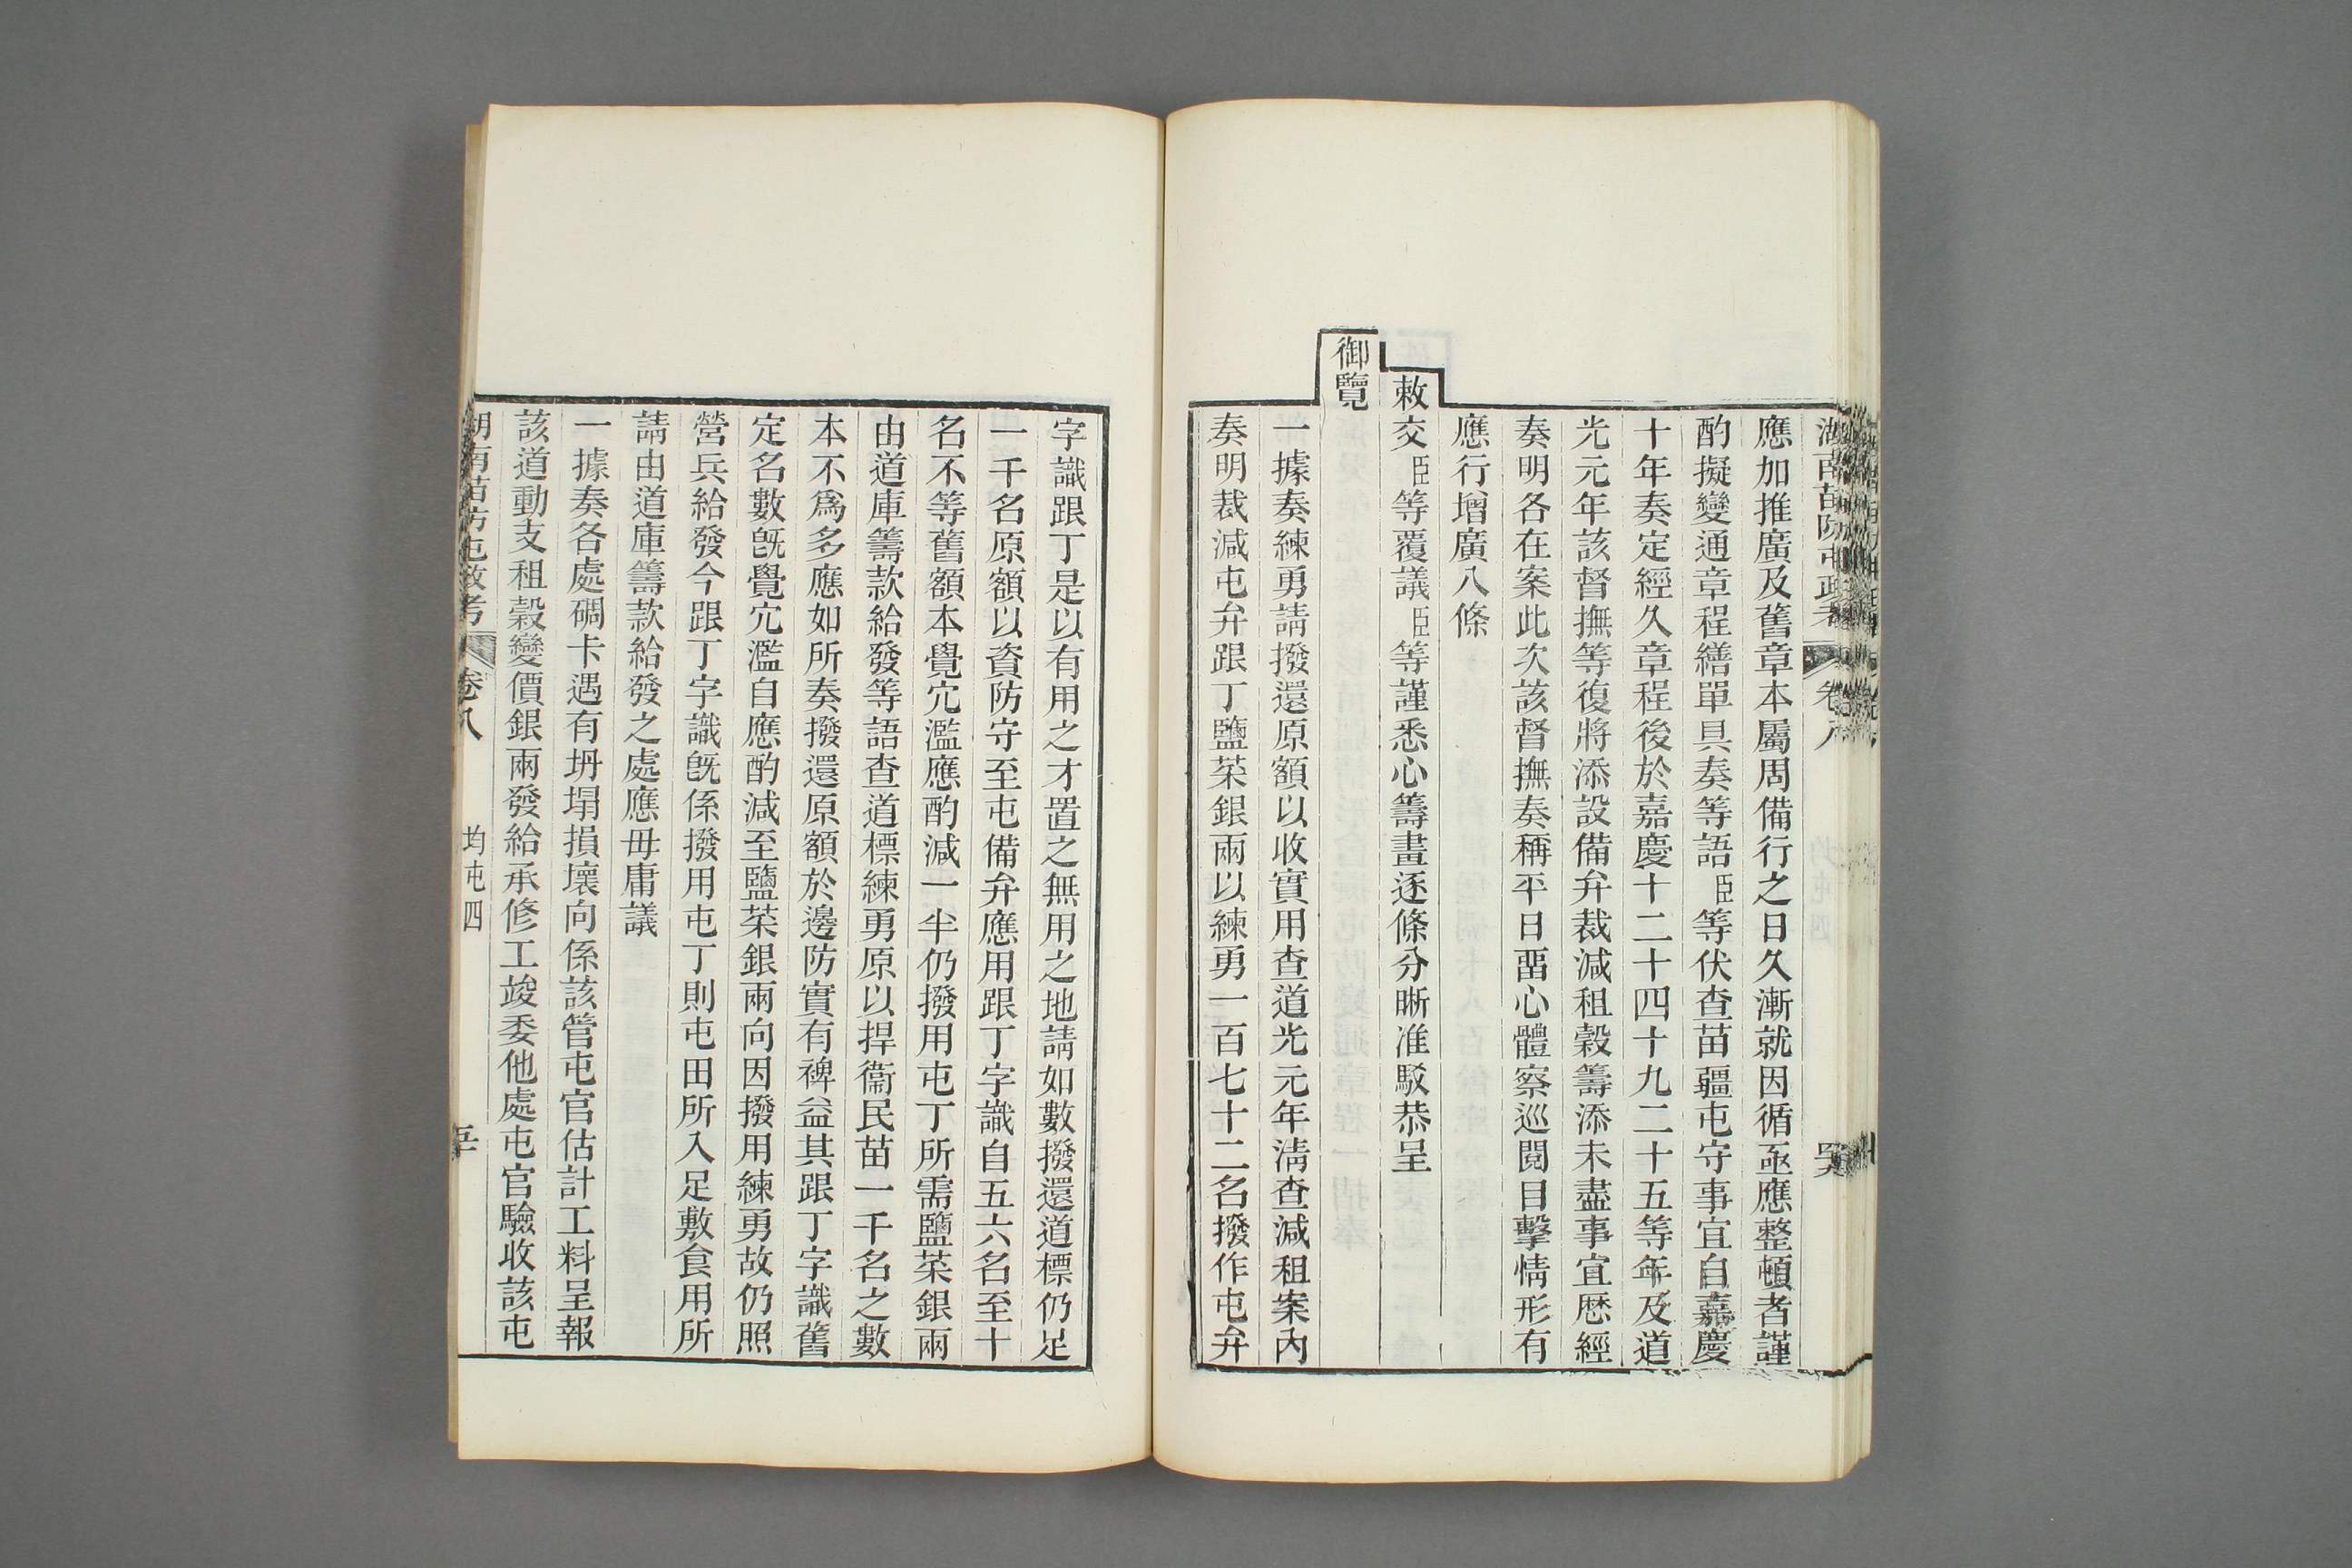 湖南苗防屯政考 卷八
應加推廣及舊章本屬周備行之日久漸就因循亟應整頓者謹
酌擬變通章程繕單具奏等語臣等伏查苗疆屯守事宜自嘉慶
十年奏定經久章程後於嘉慶十二十四十九二十五等年及道
光元年該督撫等復將添設備弁裁減租穀籌添未盡事宜歷經
奏明各在案此次該督撫奏稱平日畱心體察巡閱目擊情形有
應行增廣八條
敕交臣等覆議臣等謹悉心籌畫逐條分晰准駁恭呈
御覽
一據奏練勇請撥還原額以收實用查道光元年淸查減租案內
奏明裁減屯弁跟丁鹽菜銀兩以練勇一百七十二名撥作屯弁
字識跟丁是以有用之才置之無用之地請如數撥還道標仍足
一千名原額以資防守至屯備弁應用跟丁字識自五六名至十
名不等舊額本覺冗濫應酌減一半仍撥用屯丁所需鹽菜銀兩
由道庫籌款給發等語查道標練勇原以捍衞民苗一千名之數
本不爲多應如所奏撥還原額於邊防實有裨益其跟丁字識舊
定名數旣覺冗濫自應酌減至鹽菜銀兩向因撥用練勇故仍照
營兵給發今跟丁字識旣係撥用屯丁則屯田所入足敷食用所
請由道庫籌款給發之處應毋庸議
一據奏各處碉卡遇有坍塌損壞向係該管屯官估計工料呈報
該道動支租穀變價銀兩發給承修工竣委他處屯官驗收該屯
湖南苗防屯政考 卷八 均屯四